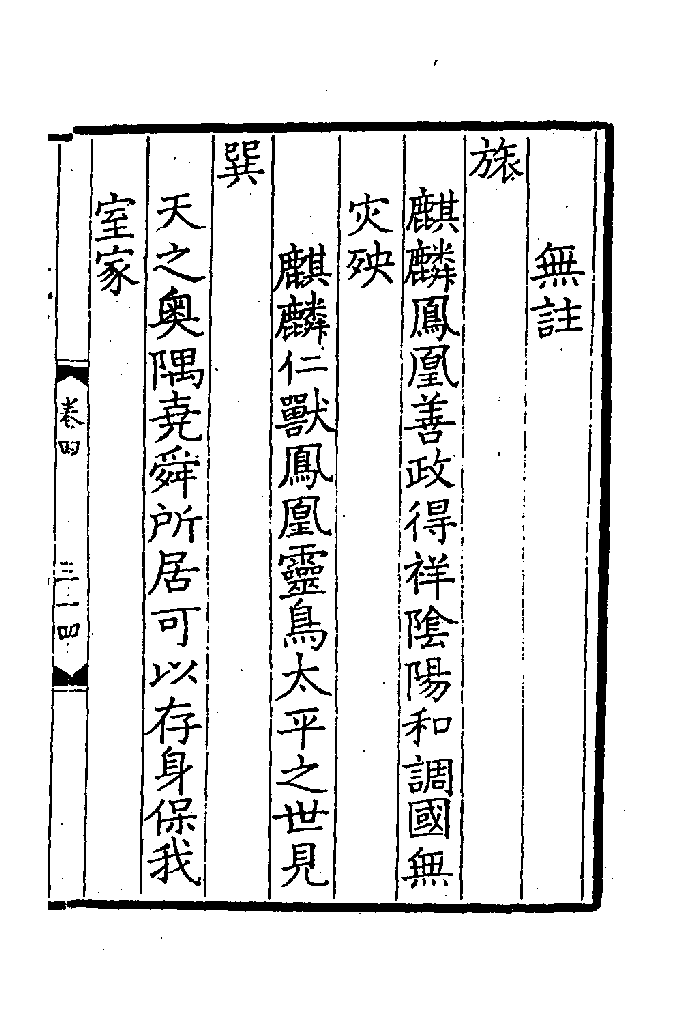 無註
旅
麒麟鳳凰善政得祥陰陽和調國無
灾殃
麒麟仁獸鳳凰靈鳥太平之世見
巽
天之奧隅堯舜所居可以存身保我
室家
卷四
三一四